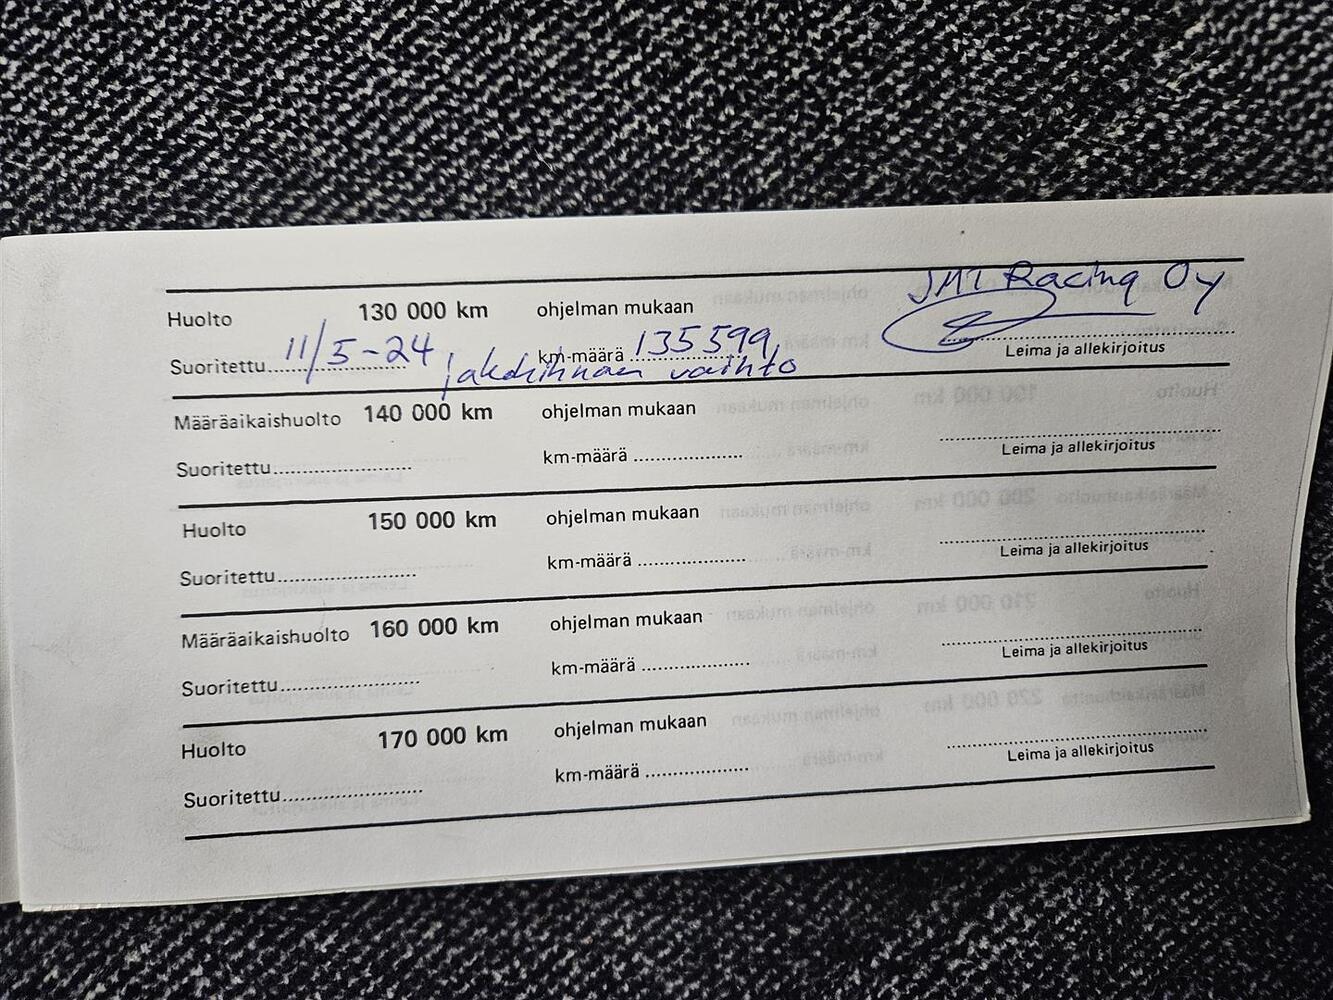 JMT Racing Oy
Huolto 130 000 km ohjelman mukaan
Suoritettu 11/5-24 km-määrä 135 599, Leima ja allekirjoitus
jakohihnan vaihto
Määräaikaishuolto 140 000 km ohjelman mukaan
Suoritettu km-määrä Leima ja allekirjoitus
Huolto 150 000 km ohjelman mukaan
Suoritettu km-määrä Leima ja allekirjoitus
Määräaikaishuolto 160 000 km ohjelman mukaan
Suoritettu km-määrä Leima ja allekirjoitus
Huolto 170 000 km ohjelman mukaan
Suoritettu km-määrä Leima ja allekirjoitus